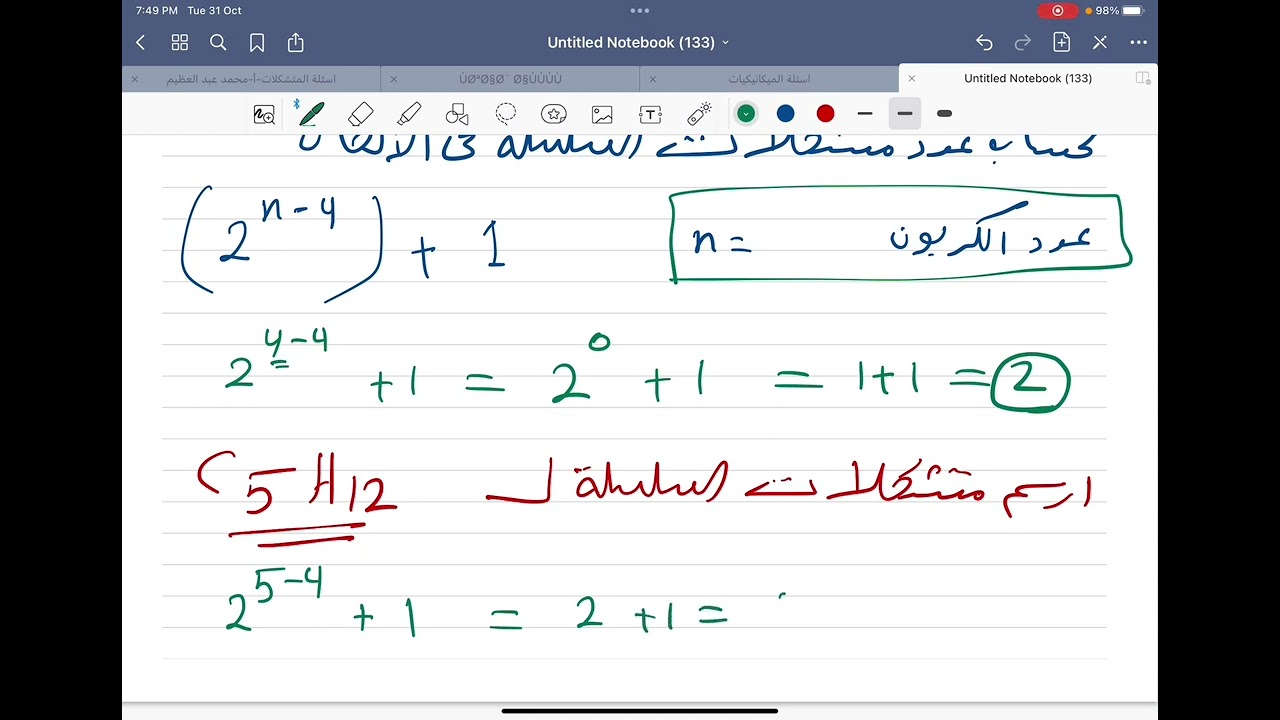 7:49 PM Tue 31 Oct
98%
Untitled Notebook (133)
اسئلة المتشكلات-أ-محمد عبد العظيم
اسئلة الميكانيكيات
Untitled Notebook (133)
T
حساب عدد متشكلات السلسلة في الألكان
(2^{n-4}) + 1
n = عدد الكربون
2^{4-4} + 1 = 2^0 + 1 = 1+1 = 2
ارسم متشكلات السلسلة لـ C5H12
2^{5-4} + 1 = 2 + 1 =